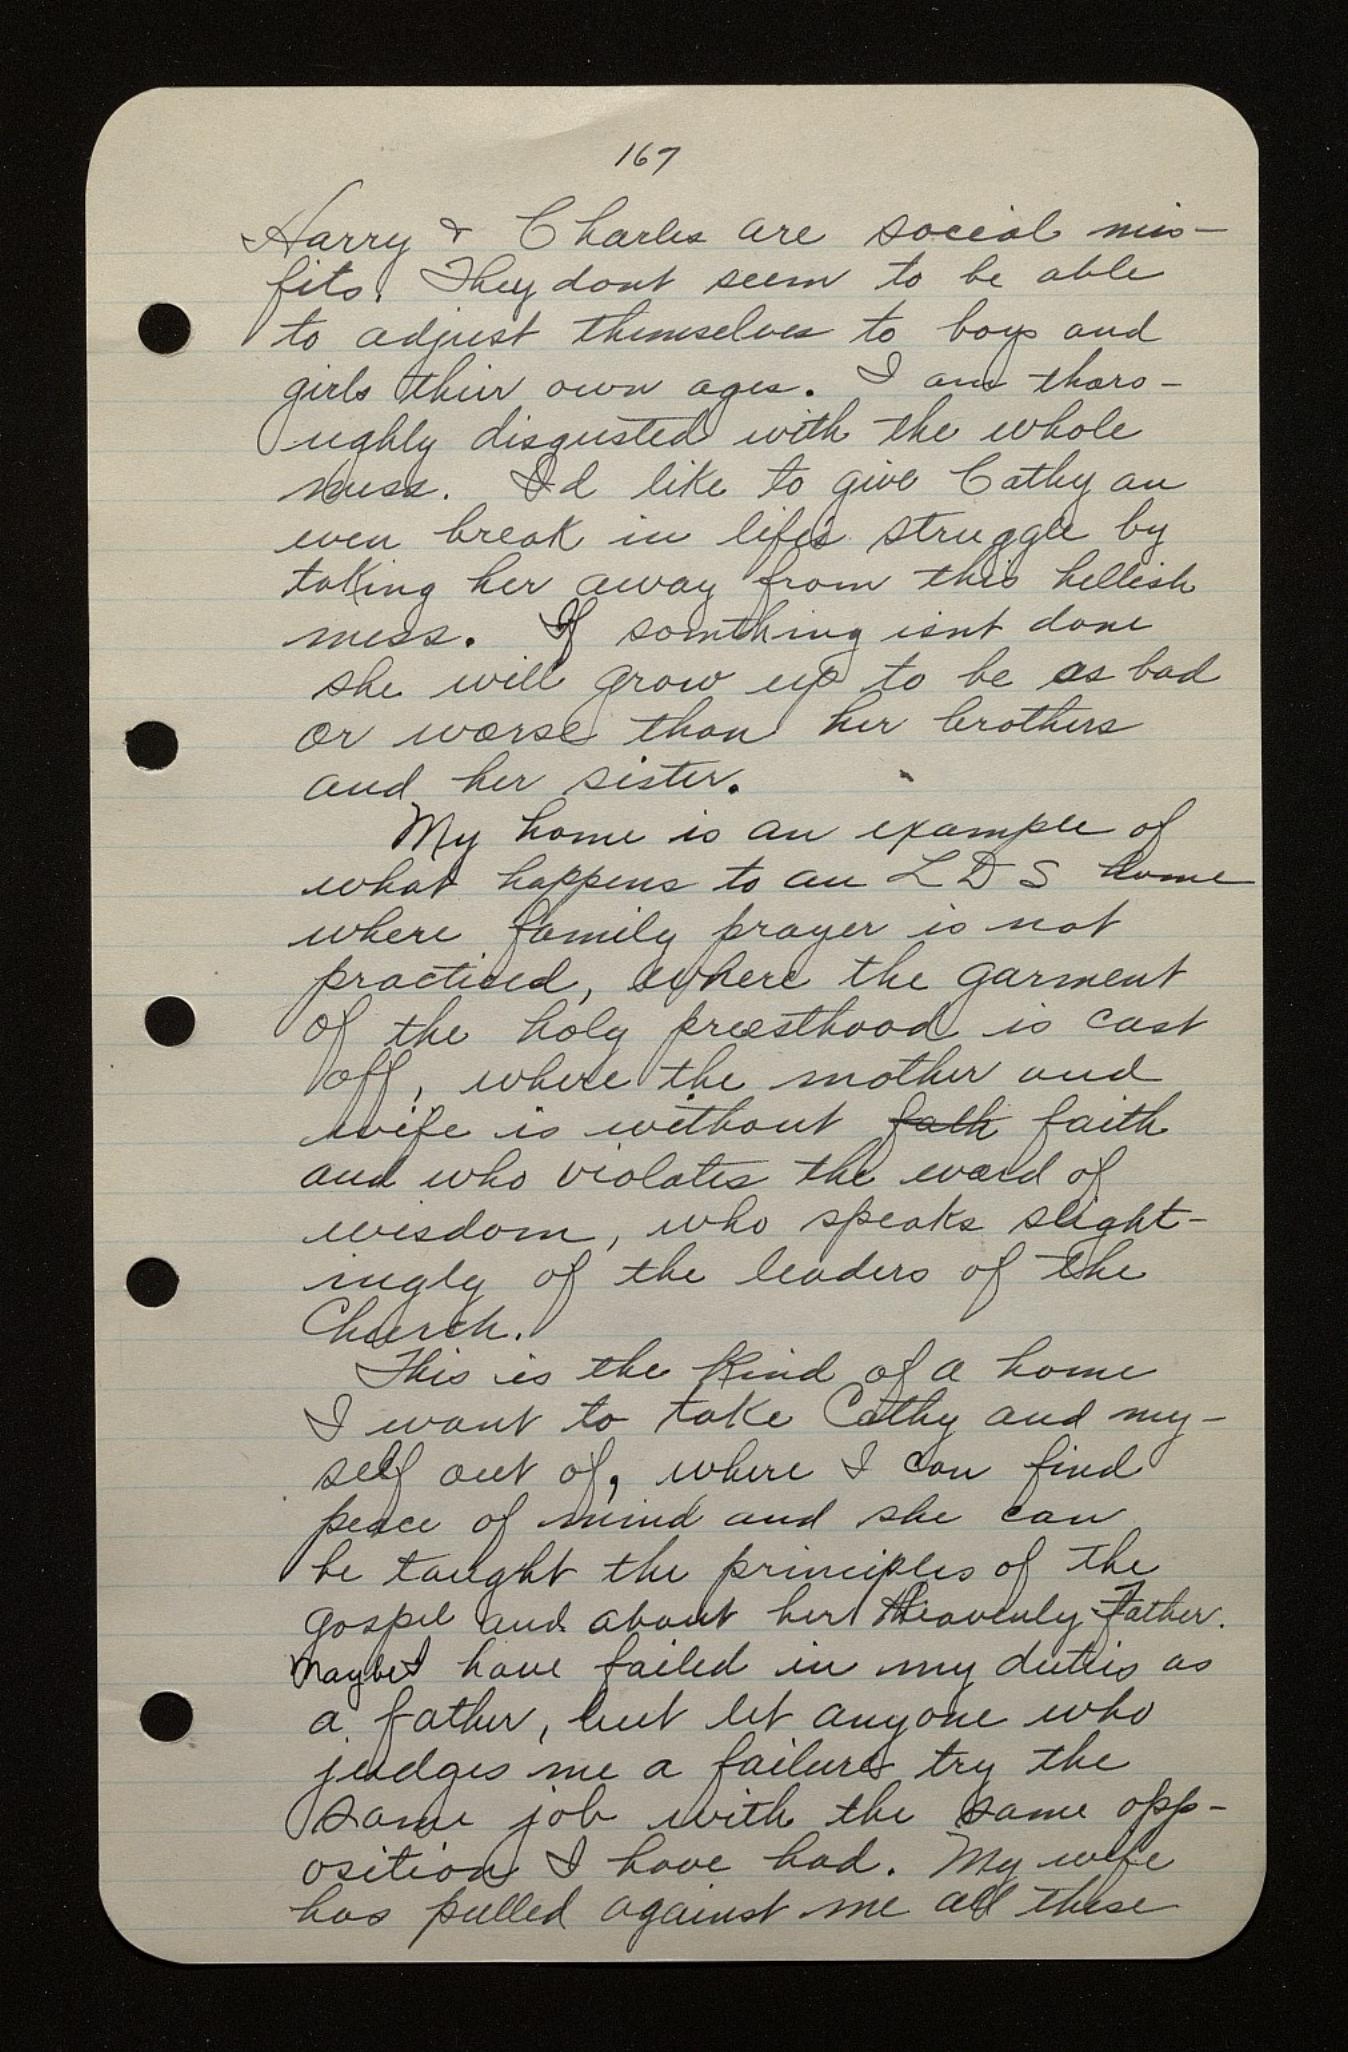 167
Harry & Charles are social mis-
fits. They dont seem to be able
to adjust themselves to boys and
girls their own ages. I am thoro-
ughly disgusted with the whole
mess. I'd like to give Cathy an
even break in life's struggle by
taking her away from this hellish
mess. If somthing isnt done
she will grow up to be as bad
or worse than her brothers
and her sister.
My home is an example of
what happens to an L D S home
where family prayer is not
practiced, where the garment
of the holy priesthood is cast
off, where the mother and
wife is without fath faith
and who violates the word of
wisdom, who speaks slight-
ingly of the leaders of the
Church.
This is the kind of a home
I want to take Cathy and my-
self out of, where I can find
peace of mind and she can
be taught the principles of the
gospel and about her Heavenly Father.
Maybe I have failed in my duties as
a father, but let anyone who
judges me a failure try the
same job with the same opp-
osition I have had. My wife
has pulled against me all these